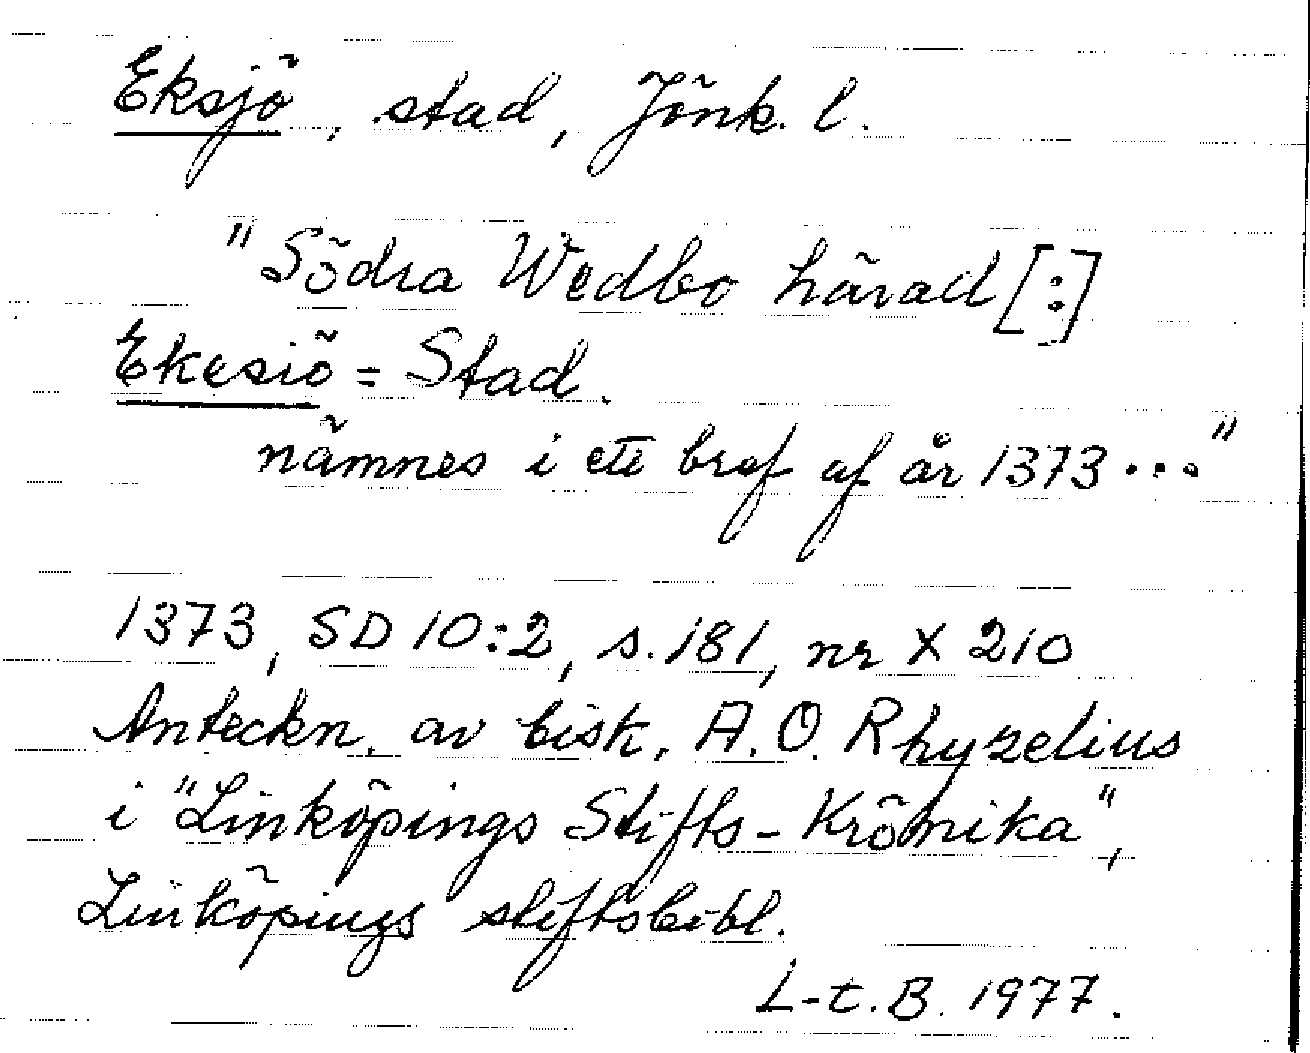 Eksjö, stad, Jönk. l.
"Södra Wedbo härad [:]
Ekesiö = Stad.
nämnes i ett bref af år 1373 ..."
1373, SD 10:2, s. 181, nr X 210
Anteckn. av bisk. A. O. Rhyzelius
i "Linköpings Stifts-Krönika",
Linköpings stiftsbibl.
L-t. B. 1977.